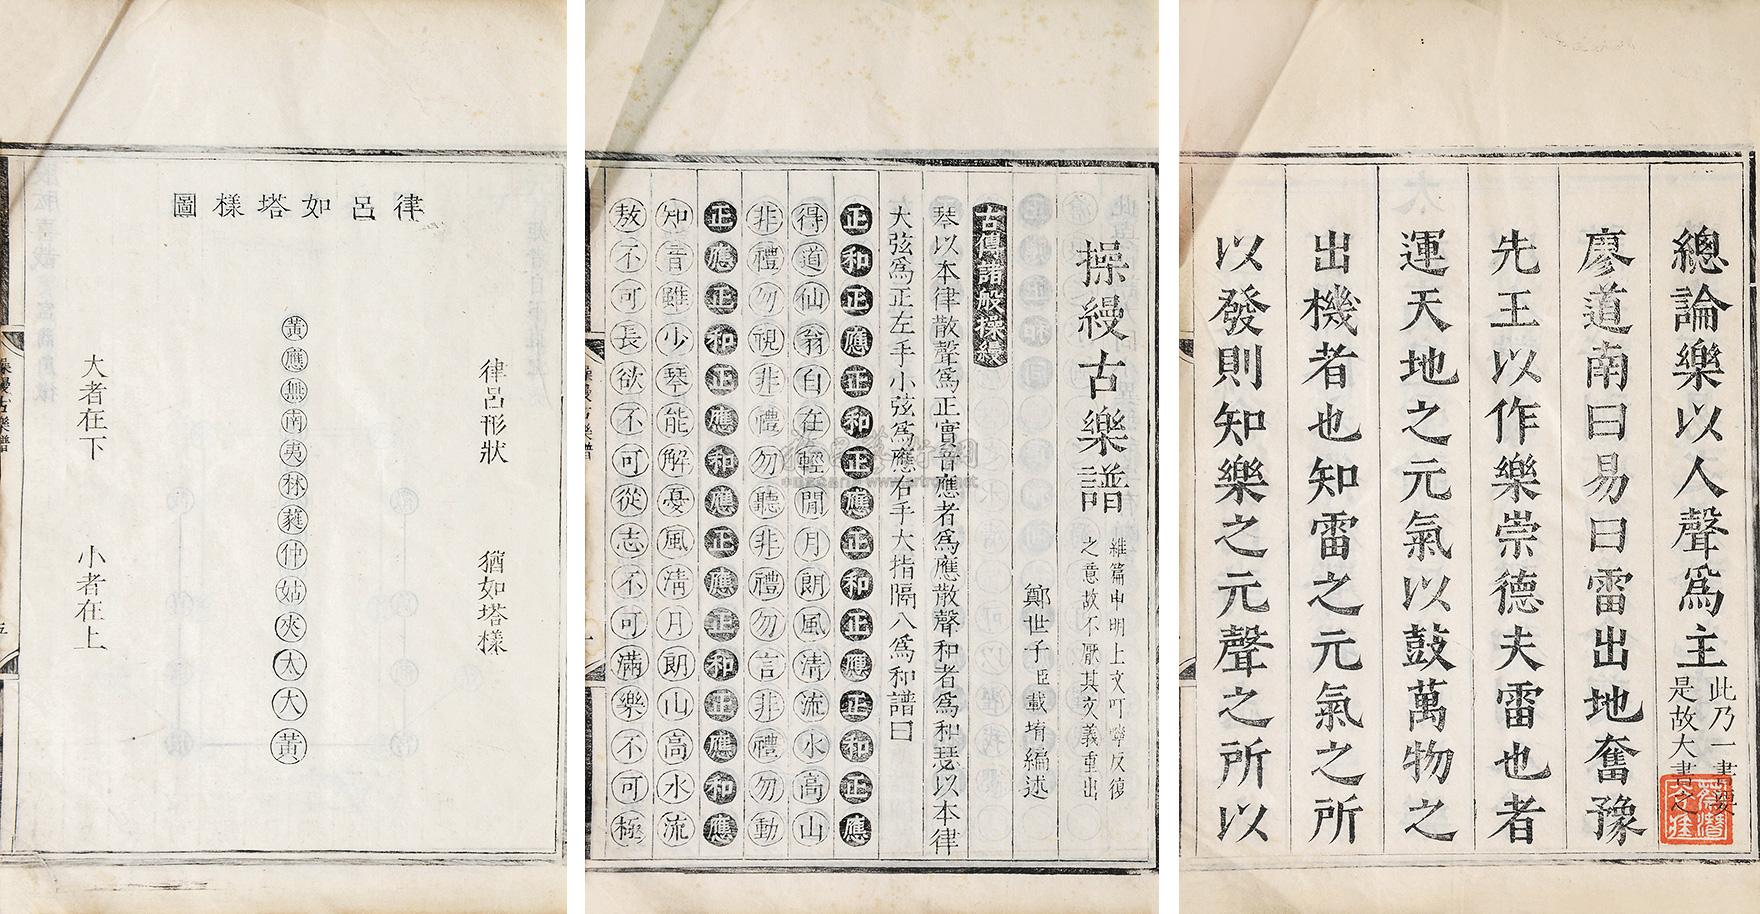 總論樂以人聲爲主
此乃一書要
是故大書之
廖道南曰易曰雷出地奮豫
先王以作樂崇德夫雷也者
運天地之元氣以鼓萬物之
出機者也知雷之元氣之所
以發則知樂之元聲之所以
操縵古樂譜
維篇中明上文叮嚀反復
之意故不厭其文義重出
鄭世子臣載堉編述
古傳諸般操縵
琴以本律散聲爲正實音應者爲應散聲和者爲和瑟以本律
大弦爲正左手小弦爲應右手大指隔八爲和譜曰
正和正應正和正應正和正應正和正應
得道仙翁自在輕閒月朗風清流水高山
非禮勿視非禮勿聽非禮勿言非禮勿動
正應正和正應和應正應正和正應和應
知音雖少琴能解憂風清月朗山高水流
敖不可長欲不可從志不可滿樂不可極
操縵古樂譜
律呂如塔樣圖
律呂形狀
猶如塔樣
黃應無南夷林蕤仲姑夾太大黃
大者在下
小者在上
操縵古樂譜
五